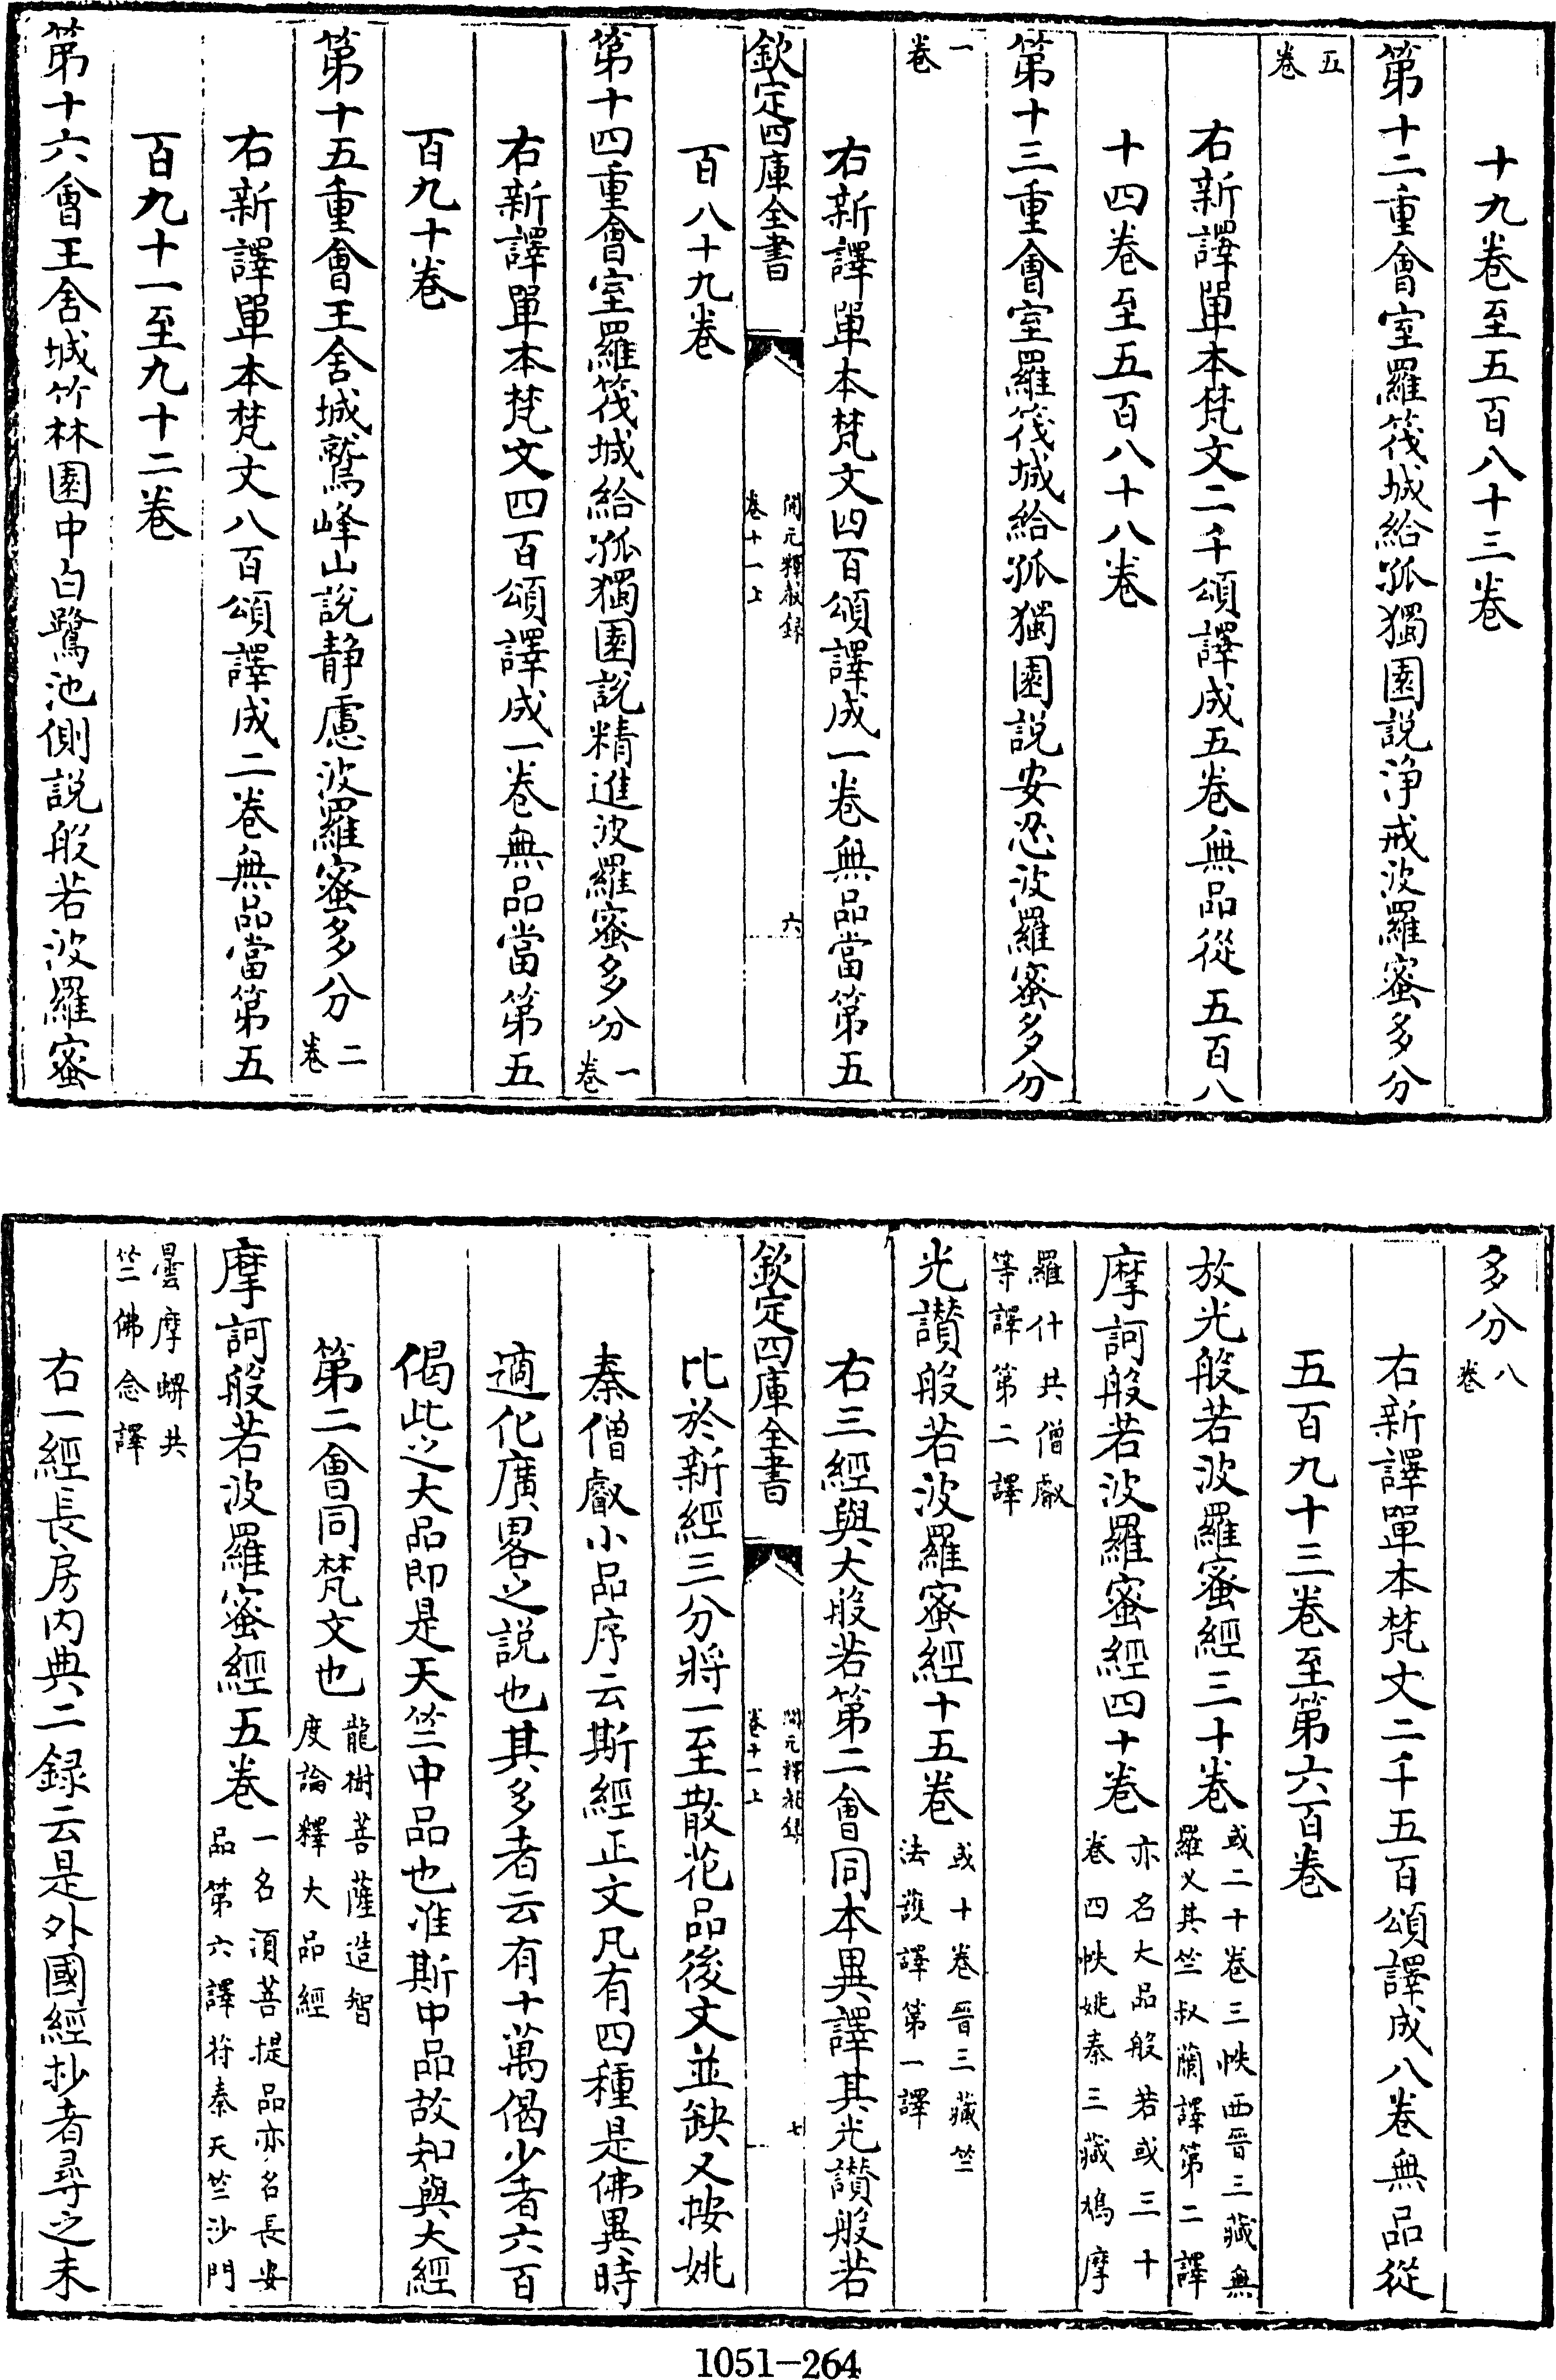 十九卷至五百八十三卷
第十二重會室羅筏城給孤獨園説浄戒波羅蜜多分
五
卷
右新譯單本梵文二千頌譯成五卷無品從五百八
十四卷至五百八十八卷
第十三重會室羅筏城給孤獨園説安忍波羅蜜多分
一
卷
右新譯單本梵文四百頌譯成一卷無品當第五
欽定四庫全書
開元釋教録
卷十一上
六
百八十九卷
第十四重會室羅筏城給孤獨園説精進波羅蜜多分
一
卷
右新譯單本梵文四百頌譯成一卷無品當第五
百九十卷
第十五重會王舍城鷲峰山説静慮波羅蜜多分
二
卷
右新譯單本梵文八百頌譯成二卷無品當第五
百九十一至九十二卷
第十六會王舍城竹林園中白鷺池側説般若波羅蜜
多分
八
卷
右新譯單本梵文二千五百頌譯成八卷無品從
五百九十三卷至第六百卷
放光般若波羅蜜經三十卷
或二十卷三帙西晋三藏無
羅义其竺叔蘭譯第二譯
摩訶般若波羅蜜經四十卷
亦名大品般若或三十
卷四帙姚秦三藏鳩摩
羅什共僧叡
等譯第二譯
光讃般若波羅蜜經十五卷
或十卷晋三藏竺
法護譯第一譯
右三經與大般若第二會同本異譯其光讃般若
欽定四庫全書
開元釋教録
卷十一上
七
比於新經三分將一至散花品後文並缺又按姚
秦僧叡小品序云斯經正文凡有四種是佛異時
適化廣畧之説也其多者云有十萬偈少者六百
偈此之大品即是天竺中品也准斯中品故知與大經
第二會同梵文也
龍樹菩薩造智
度論釋大品經
摩訶般若波羅蜜經五卷
一名須菩提品亦名長安
品第六譯苻秦天竺沙門
曇摩蜱共
竺佛念譯
右一經長房内典二録云是外國經抄者尋之未
1051-264